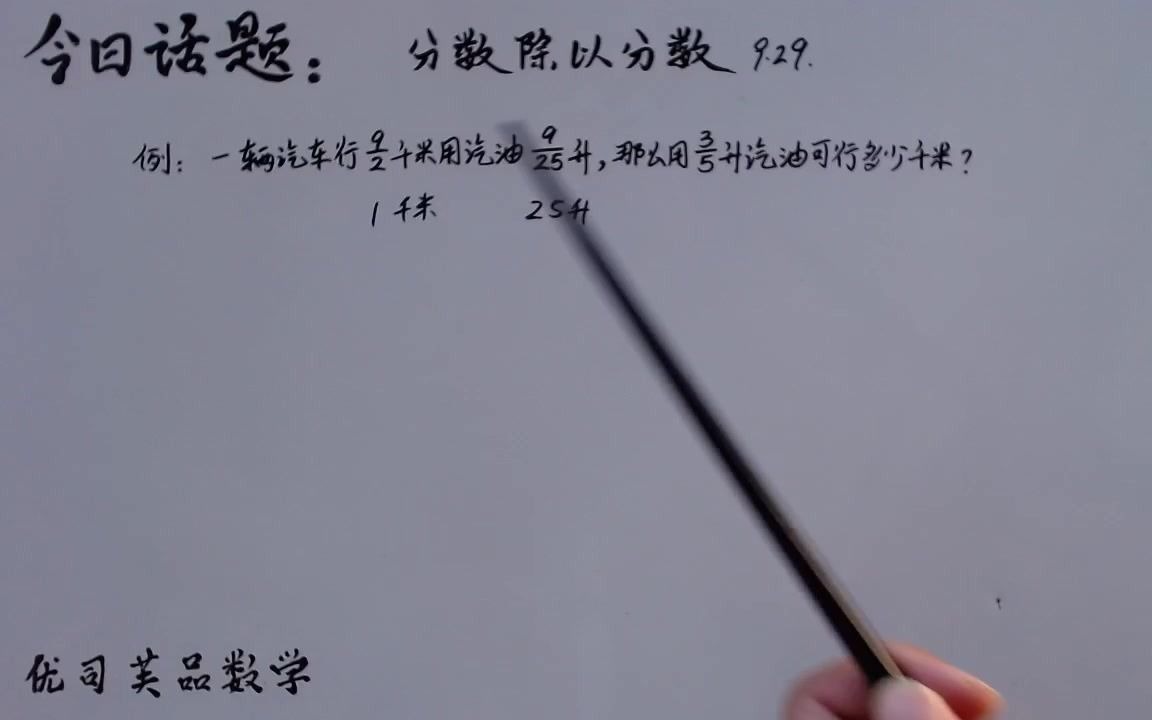 今日话题： 分数除以分数 9.29.
例：一辆汽车行9/2千米用汽油9/25升，那么用3/5升汽油可行多少千米？
1千米 25升
优司芙品数学